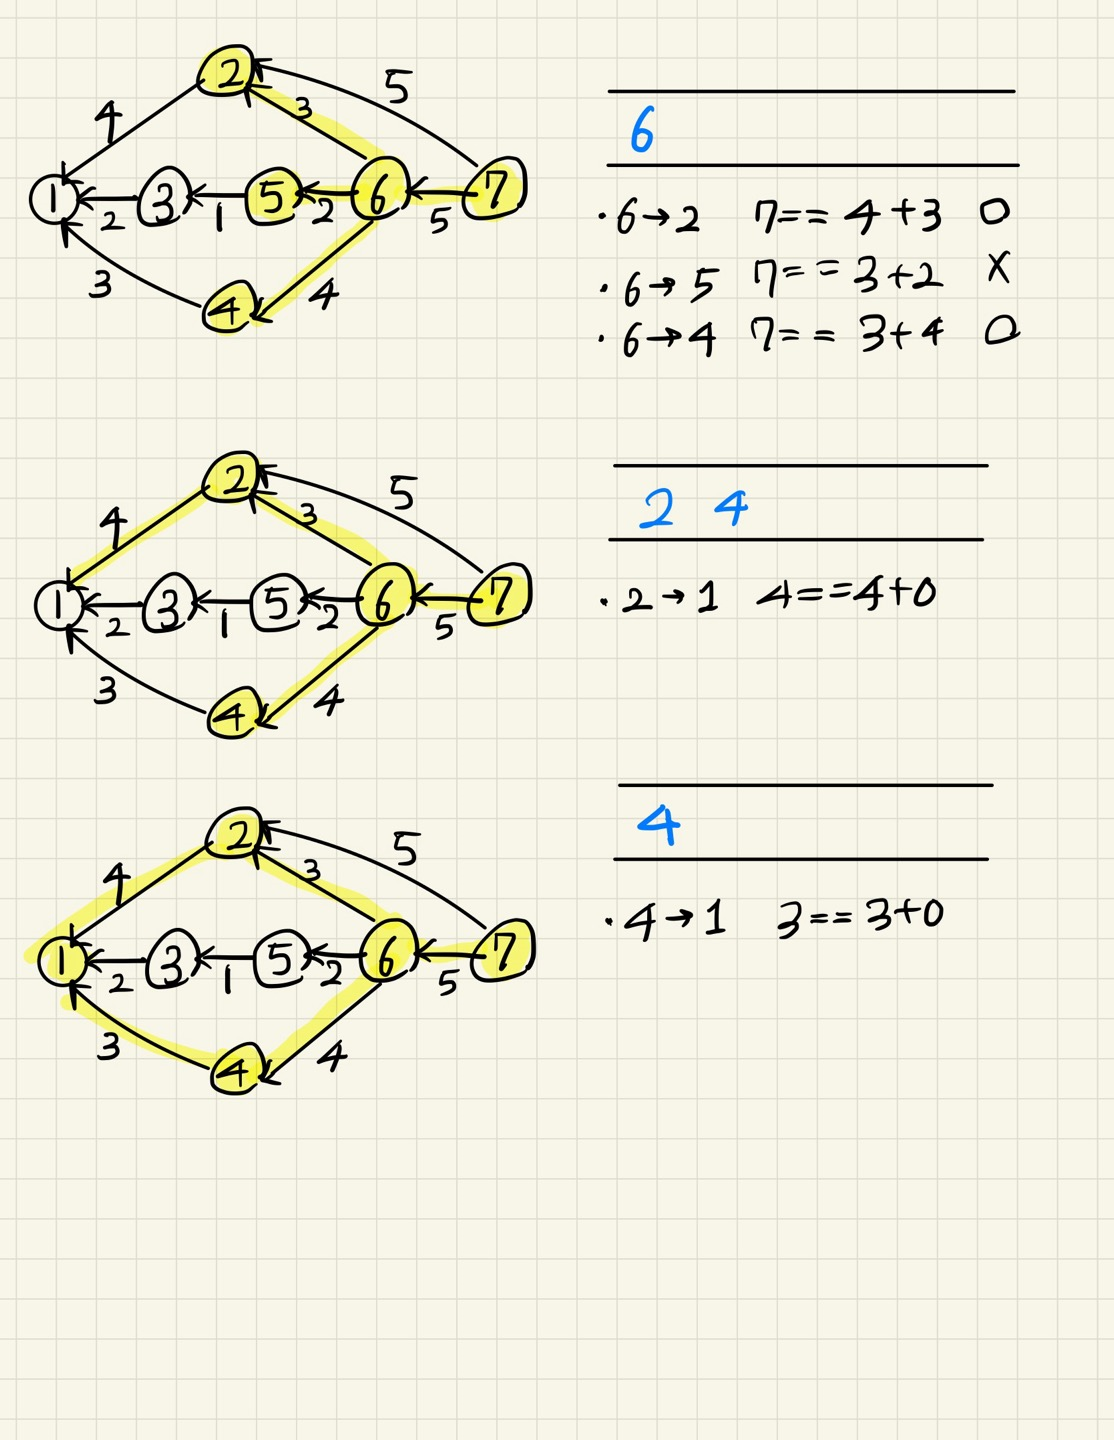 2
5
3
4
6
1 2 3 1 5 2 6 5 7
·6→2 7== 4+3 O
3 4 4
·6→5 7== 3+2 X
·6→4 7== 3+4 O
2
5
3
4
2 4
1 2 3 1 5 2 6 5 7
·2→1 4==4+0
3 4 4
2
5
3
4
4
1 2 3 1 5 2 6 5 7
·4→1 3==3+0
3 4 4